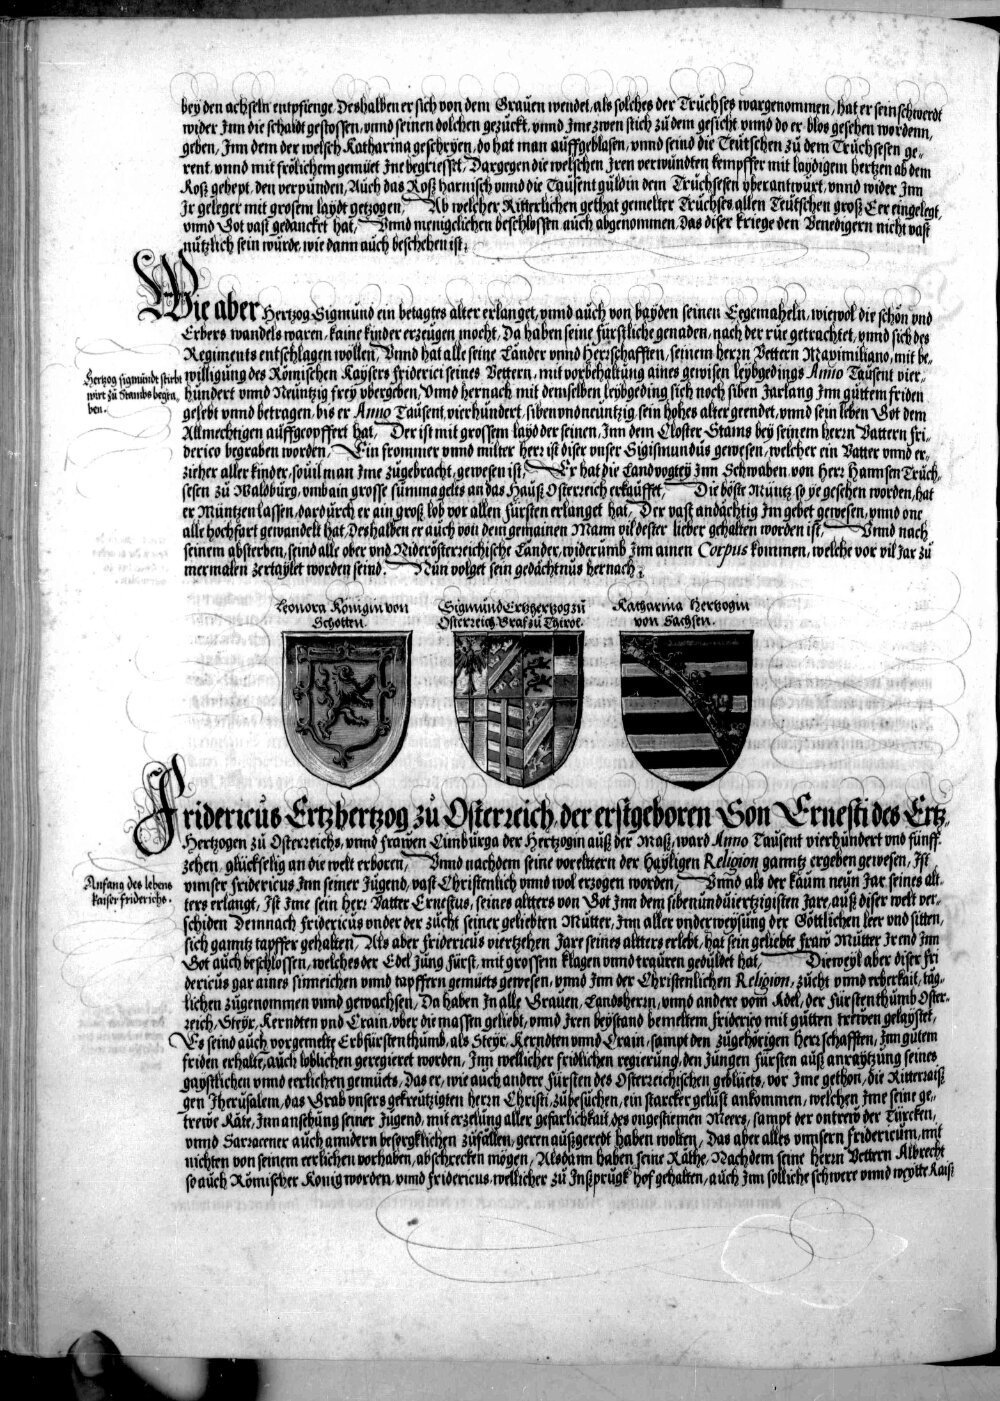 bey den achseln entpfienge, Deshalben er sich von dem Grauen wendet, als solches der Truchses wargenommen, hat er sein schwerdt
wider Inn die schaidt gestossen, vnnd seinen dolchen gezuckt, vnnd Ime zwen stich zu dem gesicht vnnd do er blos gesehen wordenn,
geben, Inn dem der welsch Katharina geschryen, do hat man auffgeblasen, vnnd seind die Teutschen zu dem Truchsesen ge-
rent, vnnd mit frölichem gemüet Ine begriesset, Dargegen die welschen Iren verwundten kempffer mit laydigem hertzen ab dem
Roß gehept, den verpunden, Auch das Roß harnisch vnnd die Tausent guldin dem Truchsesen yberantwurt, vnnd wider Inn
Ir geleger mit grosem laydt getzogen, Ab welcher Ritterlichen gethat gemelter Truchses allen Teutschen groß Eer eingelegt,
vnnd Got vast gedancket hat, Vnnd menigclichen beschlossen auch abgenommen, Das diser kriege den Venedigern nicht vast
nutzlich sein wurde, wie dann auch beschehen ist.
Wie aber Hertzog Sigmund ein betagtes alter erlanget, vnnd auch von bayden seinen Eegemaheln, wiewol die schön vnd
Erbers wandels waren, kaine kinder erzeugen mocht, Da haben seine fürstliche genaden, nach der rue getrachtet, vnnd sich des
Regiments entschlagen wöllen, Vnnd hat alle seine Länder vnnd Herrschafften, seinem herrn Vettern Maximiliano, mit be-
willigung des Römischen Kaysers friderici seines Vettern, mit vorbehaltung aines gewisen leybgedings Anno Tausent vier-
hundert vnnd Neuntzig frey vbergeben, Vnnd hernach mit demselben leybgeding sich noch siben Jarlang Inn guttem friden
gelebt vnnd betragen, bis er Anno Tausent, vierhundert, sibenvndneuntzig sein hohes alter geendet, vnnd sein leben Got dem
Allmechtigen auffgeopffert hat, Der ist mit grossem layd der seinen, Inn dem Closter Stams bey seinem herrn Vattern fri-
derico begraben worden, Ein frommer vnnd milter herr ist diser vnser Sigismundus gewesen, welcher ein Vatter vnnd er-
zieher aller kinder, souil man Ime zugebracht, gewesen ist, Er hat die Landvogtey Inn Schwaben, von Herr Hannsen Truch-
sesen zu Waldburg, vmb ain grosse summa gelts an das Hauß Osterreich erkauffet, Die böste Müntz so ye gesehen worden, hat
er Müntzen lassen, dardurch er ain groß lob vor allen fürsten erlanget hat, Der vast andächtig Im gebet gewesen, vnnd one
alle hochfart gewandelt hat, Deshalben er auch von dem gemainen Mann vil dester lieber gehalten worden ist, Vnnd nach
seinem absterben, seind alle ober vnd Niderösterreichische Länder, widerumb Inn ainen Corpus kommen, welche vor vil Jar zu
mermalen zertaylet worden seind. Nun volget sein gedächtnus hernach.
Hertzog sigmundt stirbt
wirt zu Stambs begra
ben.
Leonora Königin von
Schotten.
Sigmund Ertzhertzog zu
Osterreich Graf zu Thirol.
Katharina Hertzogin
von Sachsen.
Fridericus Ertzhertzog zu Osterreich, der erstgeboren Son Ernesti des Ertz-
Hertzogen zu Osterreichs, vnnd frawen Cimburga der Hertzogin auß der Maß, ward Anno Tausent vierhundert vnd funff-
zehen, glückselig an die welt erboren, Vnnd nachdem seine voreltern der hayligen Religion ganntz ergeben gewesen, Ist
vnnser fridericus Inn seiner Jugend, vast Christenlich vnnd wol erzogen worden, Vnnd als der kaum neun Jar seines al-
ters erlangt, Ist Ime sein herr Vatter Ernestus, seines altters von Got Inn dem sibenunduiertzigisten Jare, auß diser welt ver-
schiden Demnach fridericus vnder der zucht seiner geliebten Mutter, Inn aller vnderweysung der Göttlichen leer vnd sitten,
sich ganntz tapffer gehalten, Als aber fridericus viertzehen Jare seines altters erlebt, hat sein geliebte fraw Mutter Ir end Inn
Got auch beschlossen, welches der Edel Jung fürst, mit grossem klagen vnnd trauren geduldet hat, Dieweyl aber diser fri
dericus gar aines sinreichen vnnd tapffern gemüets gewesen, vnnd Inn der Christenlichen Religion, zucht vnnd erberkait, täg-
lichen zugenommen vnnd gewachsen, Da haben In alle Grauen, Landsherrn, vnnd andere vom Adel, der fürstenthumb Oster-
reich, Steyr, Kerndten vnd Crain, vber die massen geliebt, vnnd Iren beystand bemeltem friderico mit gutten trewen gelaystet,
Es seind auch vorgemelte Erbfürstenthumb, als Steyr, Kerndten vnnd Crain, sampt den zugehörigen herrschafften, Inn gutem
friden erhalte, auch loblichen geregieret worden, Inn wellicher fridlichen regierung, den Jungen fürsten auß anraytzung seines
gaystlichen vnnd eerlichen gemüets, Das er, wie auch andere fürsten des Osterreichischen geblüets, vor Ime gethon, die Ritterraiß
gen Jherusalem, das Grab vnsers gekreutzigten herrn Christi, zubesuchen, ein starcker gelust ankommen, welchen Ime seine ge-
trewe Räte, Inn ansehung seiner Jugend, mit erzelung aller gefarlichkait, des ongestiemen Meers, sampt der ontrew der Türcken,
vnnd Sarracener auch anndern besorgklichen zufällen, geren außgeredt haben wolten, Das aber alles vnnsern fridericum, mit
nichten von seinem eerlichen vorhaben, abschrecken mögen, Alsdann haben seine Räthe, Nachdem seine herrn Vettern Albrecht
so auch Römischer König worden, vnnd fridericus, wellicher zu Inßprugk hof gehalten, auch Inn solliche schwere vnnd weytte Raiß
Anfang des lebens
kaiser friderichs.